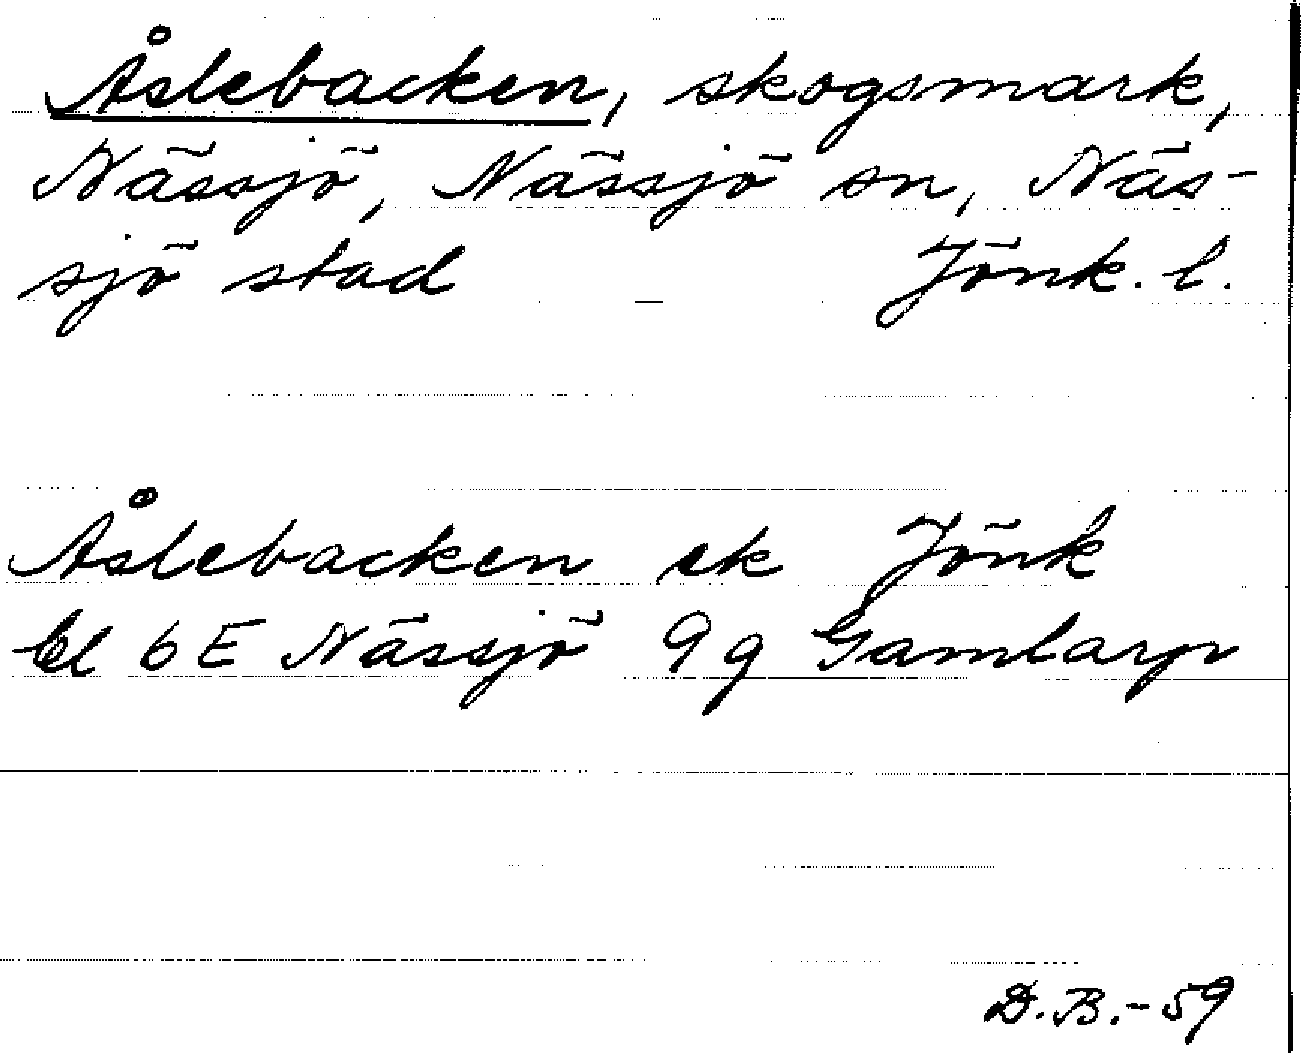 Åslebacken, skogsmark,
Nässjö, Nässjö sn, Näs-
sjö stad Jönk. l.
Åslebacken ek Jönk
bl 6E Nässjö 9g Gamlarp
D.B.-59